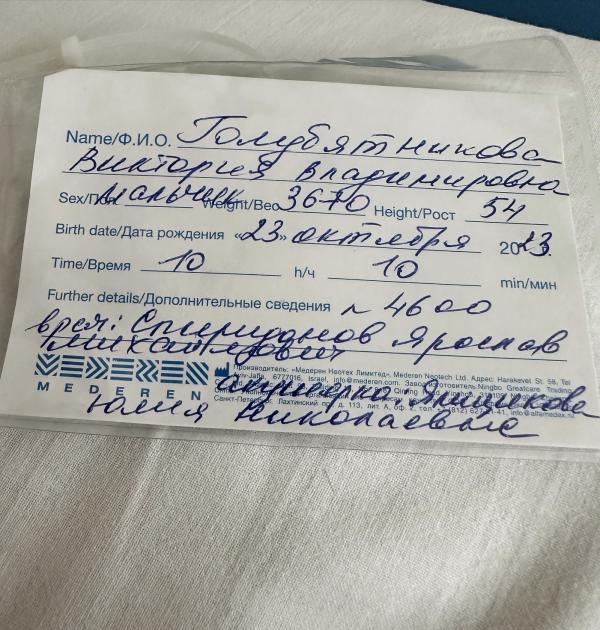 Name/Ф.И.О. Голубятникова
Виктория Владимировна
Sex/Пол мальчик Weight/Вес 3670 Height/Рост 54
Birth date/Дата рождения «23» октября 2023.
Time/Время 10 h/ч 10 min/мин
Further details/Дополнительные сведения n 4600
врач: Спиридонов Ярослав
Михайлович
Производитель: «Медерен Неотех Лимитед», Mederen Neotech Ltd. Адрес: Harakevet St. 58, Tel
Aviv-Jaffa, 6777016, Israel, info@mederen.com. Ningbo Greatcare Trading
акушерка
MEDEREN
Санкт-Петербург, Лахтинский пр. д. 113, лит. А, оф. 2, info@alfamedex.ru
Юлия Николаевна